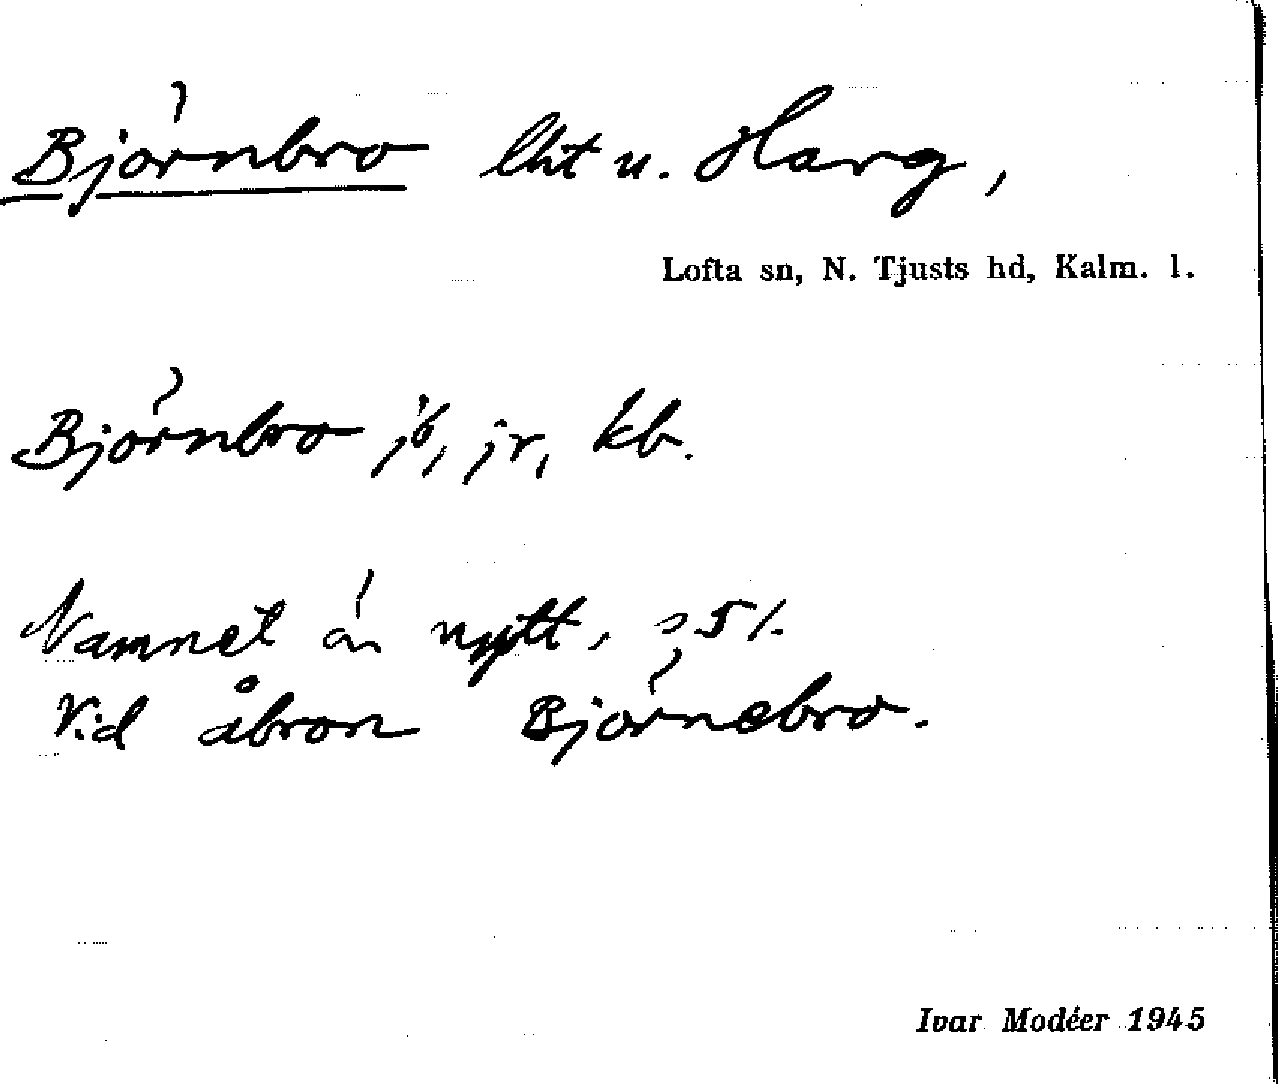 Björnbro lht u. Harg,
Lofta sn, N. Tjusts hd, Kalm. l.
Björnbro jb, jr, kb.
Namnet är nytt,
Vid åbron Björnebro.
Ivar Modéer 1945